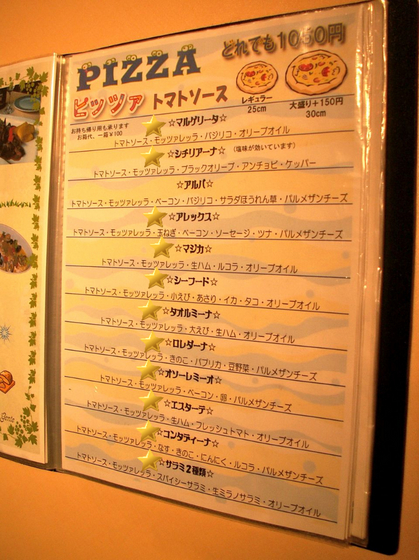 PIZZA
どれでも1050円
ピッツァ トマトソース
お持ち帰り用も承ります
お箱代、一箱￥100
レギュラー
25cm
大盛り＋150円
30cm
☆マルゲリータ☆
トマトソース・モッツァレッラ・バジリコ・オリーブオイル
☆シチリアーナ☆ (塩味が効いています)
トマトソース・モッツァレッラ・ブラックオリーブ・アンチョビ・ケッパー
☆アルバ☆
トマトソース・モッツァレッラ・ベーコン・バジリコ・サラダほうれん草・パルメザンチーズ
☆アレックス☆
トマトソース・モッツァレッラ・玉ねぎ・ベーコン・ソーセージ・ツナ・パルメザンチーズ
☆マジカ☆
トマトソース・モッツァレッラ・生ハム・ルコラ・オリーブオイル
☆シーフード☆
トマトソース・モッツァレッラ・小えび・あさり・イカ・タコ・オリーブオイル
☆タオルミーナ☆
トマトソース・モッツァレッラ・大えび・生ハム・オリーブオイル
☆ロレダーナ☆
トマトソース・モッツァレッラ・きのこ・パプリカ・豆野菜・パルメザンチーズ
☆オソーレミーオ☆
トマトソース・モッツァレッラ・ベーコン・卵・パルメザンチーズ
☆エスターテ☆
トマトソース・モッツァレッラ・生ハム・フレッシュトマト・オリーブオイル
☆コンタディーナ☆
トマトソース・モッツァレッラ・なす・きのこ・にんにく・ルコラ・パルメザンチーズ
☆サラミ2種類☆
トマトソース・モッツァレッラ・スパイシーサラミ・生ミラノサラミ・オリーブオイル